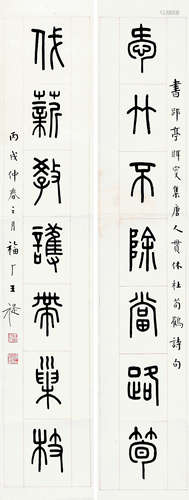 愛竹不除當路筍
書郘亭眲叟集唐人貫休杜荀鶴詩句
伐薪教護帶巢枝
丙戌仲春之月福厂王禔